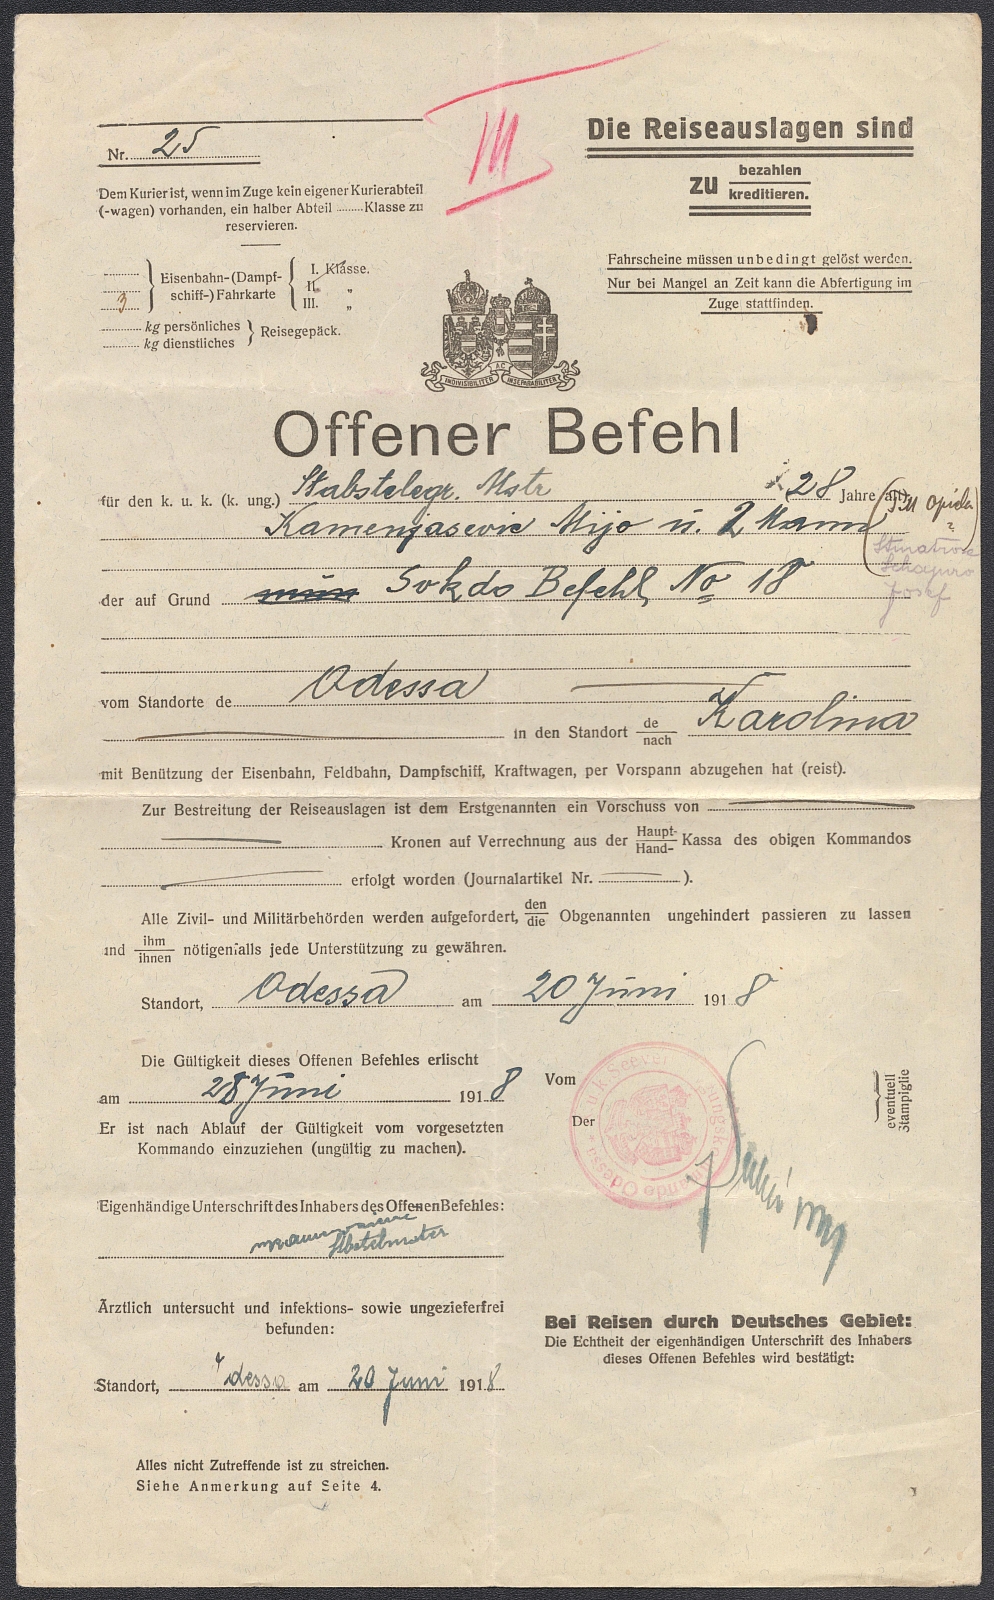 Nr. 25
III
Die Reiseauslagen sind
zu bezahlen
kreditieren.
Dem Kurier ist, wenn im Zuge kein eigener Kurierabteil
(-wagen) vorhanden, ein halber Abteil ........ Klasse zu
reservieren.
Fahrscheine müssen unbedingt gelöst werden.
Nur bei Mangel an Zeit kann die Abfertigung im
Zuge stattfinden.
3 Eisenbahn-(Dampf-
schiff-) Fahrkarte
I. Klasse.
II. „
III. „
kg persönliches
kg dienstliches
Reisegepäck.
INDIVISIBILITER AC INSEPARABILITER
Offener Befehl
für den k. u. k. (k. ung.) Stabstelegr. Mstr 28 Jahre alt)
Kamenjasevic Mijo u. 2 Mann
Schapiro
Josef
der auf Grund Sokdo Befehl No 18
vom Standorte de Odessa
in den Standort de
nach Karolina
mit Benützung der Eisenbahn, Feldbahn, Dampfschiff, Kraftwagen, per Vorspann abzugehen hat (reist).
Zur Bestreitung der Reiseauslagen ist dem Erstgenannten ein Vorschuss von
Kronen auf Verrechnung aus der Haupt-
Hand- Kassa des obigen Kommandos
erfolgt worden (Journalartikel Nr. ).
Alle Zivil- und Militärbehörden werden aufgefordert, den
die Obgenannten ungehindert passieren zu lassen
und ihm
ihnen nötigenfalls jede Unterstützung zu gewähren.
Standort, Odessa am 20 Juni 1918
Die Gültigkeit dieses Offenen Befehles erlischt
am 28 Juni 1918
Er ist nach Ablauf der Gültigkeit vom vorgesetzten
Kommando einzuziehen (ungültig zu machen).
Vom
Der
eventuell
Stampiglie
Odessa
Eigenhändige Unterschrift des Inhabers des Offenen Befehles:
Ärztlich untersucht und infektions- sowie ungezieferfrei
befunden:
Standort, Odessa am 20 Juni 1918
Bei Reisen durch Deutsches Gebiet:
Die Echtheit der eigenhändigen Unterschrift des Inhabers
dieses Offenen Befehles wird bestätigt:
Alles nicht Zutreffende ist zu streichen.
Siehe Anmerkung auf Seite 4.